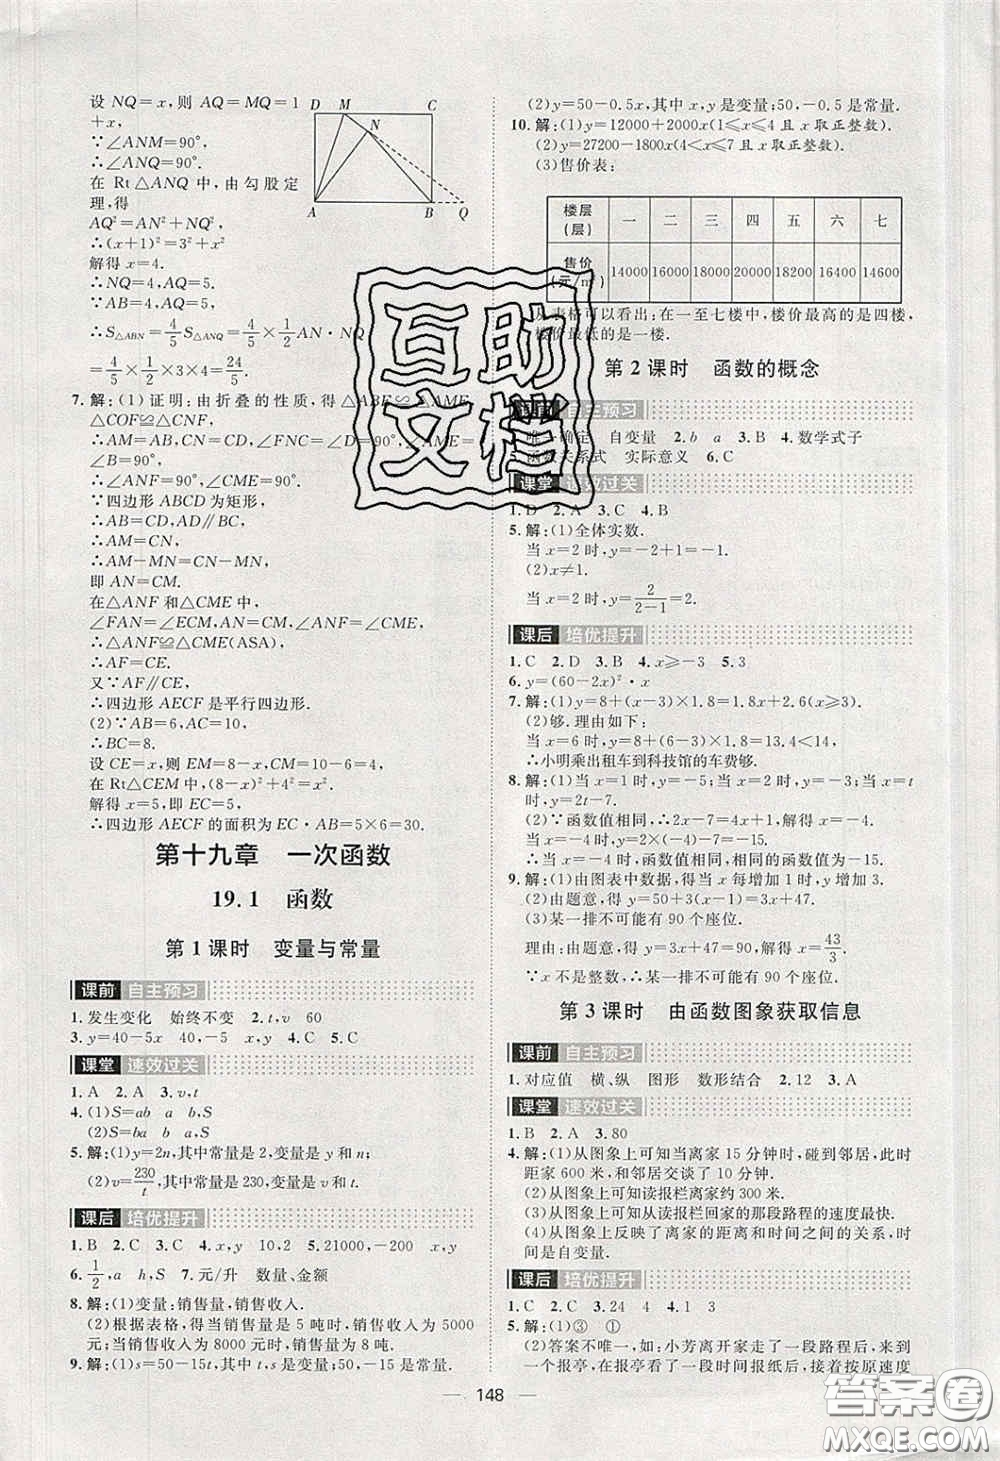 设 NQ=x,则 AQ=MQ=1
+x,
∵∠ANM=90°,
∴∠ANQ=90°.
在 Rt△ANQ 中,由勾股定
理,得
AQ²=AN²+NQ²,
∴(x+1)²=3²+x²,
解得 x=4.
∴NQ=4,AQ=5.
∵AB=4,AQ=5,
∴S△ABN=4/5 S△ANQ=4/5×1/2 AN·NQ
=4/5×1/2×3×4=24/5.
D M C
N
A B Q
7.解:(1)证明:由折叠的性质,得△ABE≌△AME,
△COF≌△CNF,
∴AM=AB,CN=CD,∠FNC=∠D=90°,∠AME=
∠B=90°.
∴∠ANF=90°,∠CME=90°.
∵四边形 ABCD 为矩形,
∴AB=CD,AD∥BC.
∴AM=CN,
∴AM-MN=CN-MN,
即 AN=CM.
在△ANF 和△CME 中,
∠FAN=∠ECM,AN=CM,∠ANF=∠CME,
∴△ANF≌△CME(ASA).
∴AF=CE.
又∵AF∥CE,
∴四边形 AECF 是平行四边形.
(2)∵AB=6,AC=10,
∴BC=8.
设 CE=x,则 EM=8-x,CM=10-6=4,
在 Rt△CEM 中,(8-x)²+4²=x².
解得 x=5,即 EC=5,
∴四边形 AECF 的面积为 EC·AB=5×6=30.
第十九章 一次函数
19.1 函数
第1课时 变量与常量
课前 自主预习
1.发生变化 始终不变 2.t,v 60
3.y=40-5x 40,-5 x,y 4.C 5.C
课堂 速效过关
1.A 2.A 3.v,t
4.(1)S=ab a b,S
(2)S=ba b a,S
5.解:(1)y=2n,其中常量是2,变量是 y 和 n;
(2)v=230/t,其中常量是230,变量是 v 和 t.
课后 培优提升
1.B 2.C 3.C 4.x,y 10,2 5.21000,-200 x,y
6.1/2,a h,S 7.元/升 数量、金额
8.解:(1)变量:销售量,销售收入.
(2)根据表格,得出:当销售量是5吨时,销售收入为5000
元;当销售收入为8000元时,销售量为8吨.
9.解:(1)s=50-15t,其中 t,s 是变量;50,-15 是常量.
(2)y=50-0.5x,其中 x,y 是变量;50,-0.5 是常量.
10.解:(1)y=12000+2000x(1≤x≤4 且 x 取正整数).
(2)y=27200-1800x(4<x≤7 且 x 取正整数).
(3)售价表:
楼层(层) 一 二 三 四 五 六 七
售价(元/m²) 14000 16000 18000 20000 18200 16400 14600
从表格可以看出:在一至七楼中,楼价最高的是四楼,
楼价最低的是一楼.
第2课时 函数的概念
课前 自主预习
唯一确定 自变量 2.b a 3.B 4.数学式子
5.函数关系式 实际意义 6.C
课堂 速效过关
1.D 2.A 3.C 4.B
5.解:(1)全体实数.
当 x=2 时,y=-2+1=-1.
(2)x≠1.
当 x=2 时,y=2/(2-1)=2.
课后 培优提升
1.C 2.D 3.B 4.x≥-3 5.3
6.y=(60-2x)²·x
7.解:(1)y=8+(x-3)×1.8=1.8x+2.6(x≥3).
(2)够.理由如下:
当 x=6 时,y=8+(6-3)×1.8=13.4<14.
小明乘出租车到科技馆的车费够.
8.解:(1)当 x=1 时,y=-5;当 x=2 时,y=-3;当 x=
t 时,y=2t-7.
(2)∵函数值相同,∴2x-7=4x+1,解得 x=-4.
当 x=-4 时,y=2×(-4)-7=-15.
∴当 x=-4 时,函数值相同,相同的函数值为-15.
9.解:(1)由图表中数据,得当 x 每增加1时,y 增加3.
(2)由题意,得 y=50+3(x-1)=3x+47.
(3)某一排不可能有90个座位.
理由:由题意,得 y=3x+47=90,解得 x=43/3.
∵x 不是整数,∴某一排不可能有90个座位.
第3课时 由函数图象获取信息
课前 自主预习
1.对应值 横、纵 图形 数形结合 2.12 3.A
课堂 速效过关
1.B 2.A 3.80
4.解:(1)从图象上可知离家15分钟时,碰到邻居,此时
距家600米,和邻居交谈了10分钟.
(2)从图象上可知读报栏离家约300米.
(3)从图象上可知从读报栏回家的那段路程的速度最快.
(4)图象上反映了离家的距离和时间之间的关系,时
间是自变量.
课后 培优提升
1.C 2.C 3.24 4 4.1
5.解:(1)③ ①
(2)答案不唯一,如:小芳离开家走了一段路程后,来到
一个报亭,在报亭看了一段时间报纸后,接着按原速度
148
互助
文档
答案圈
MXQE.COM